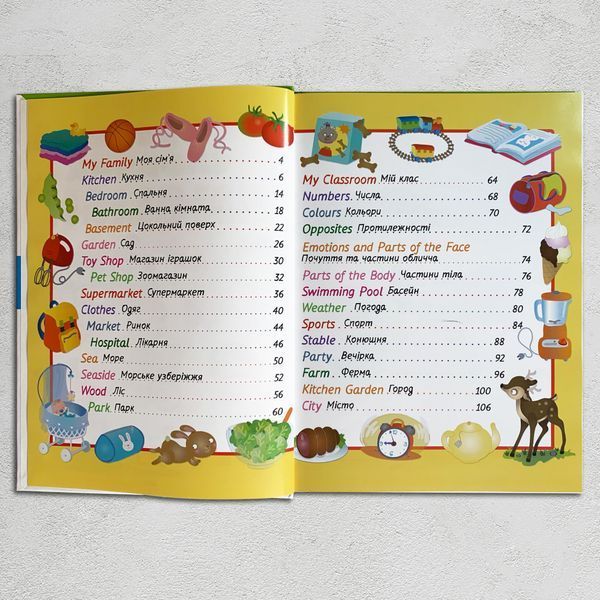 My Family Моя сім'я 4
Kitchen Кухня 6
Bedroom Спальня 14
Bathroom Ванна кімната 18
Basement Цокольний поверх 22
Garden Сад 26
Toy Shop Магазин іграшок 30
Pet Shop Зоомагазин 32
Supermarket Супермаркет 36
Clothes Одяг 40
Market Ринок 44
Hospital Лікарня 46
Sea Море 50
Seaside Морське узбережжя 52
Wood Ліс 56
Park Парк 60
My Classroom Мій клас 64
Numbers Числа 68
Colours Кольори 70
Opposites Протилежності 72
Emotions and Parts of the Face
Почуття та частини обличча 74
Parts of the Body Частини тіла 76
Swimming Pool Басейн 78
Weather Погода 80
Sports Спорт 84
Stable Конюшня 88
Party Вечірка 92
Farm Ферма 96
Kitchen Garden Город 100
City Місто 106